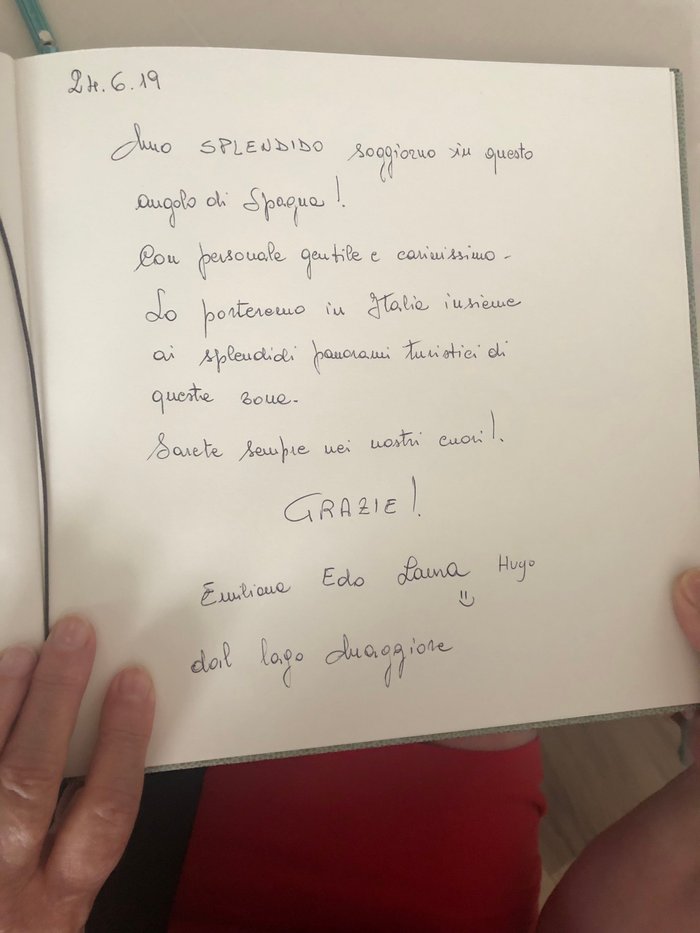 24.6.19
Uno SPLENDIDO soggiorno in questo
angolo di Spagna!
Con personale gentile e carinissimo.
Lo porteremo in Italia insieme
ai splendidi panorami turistici di
queste zone.
Sarete sempre nei nostri cuori!.
GRAZIE!
Emiliana Edo Laura Hugo
dal lago Maggiore